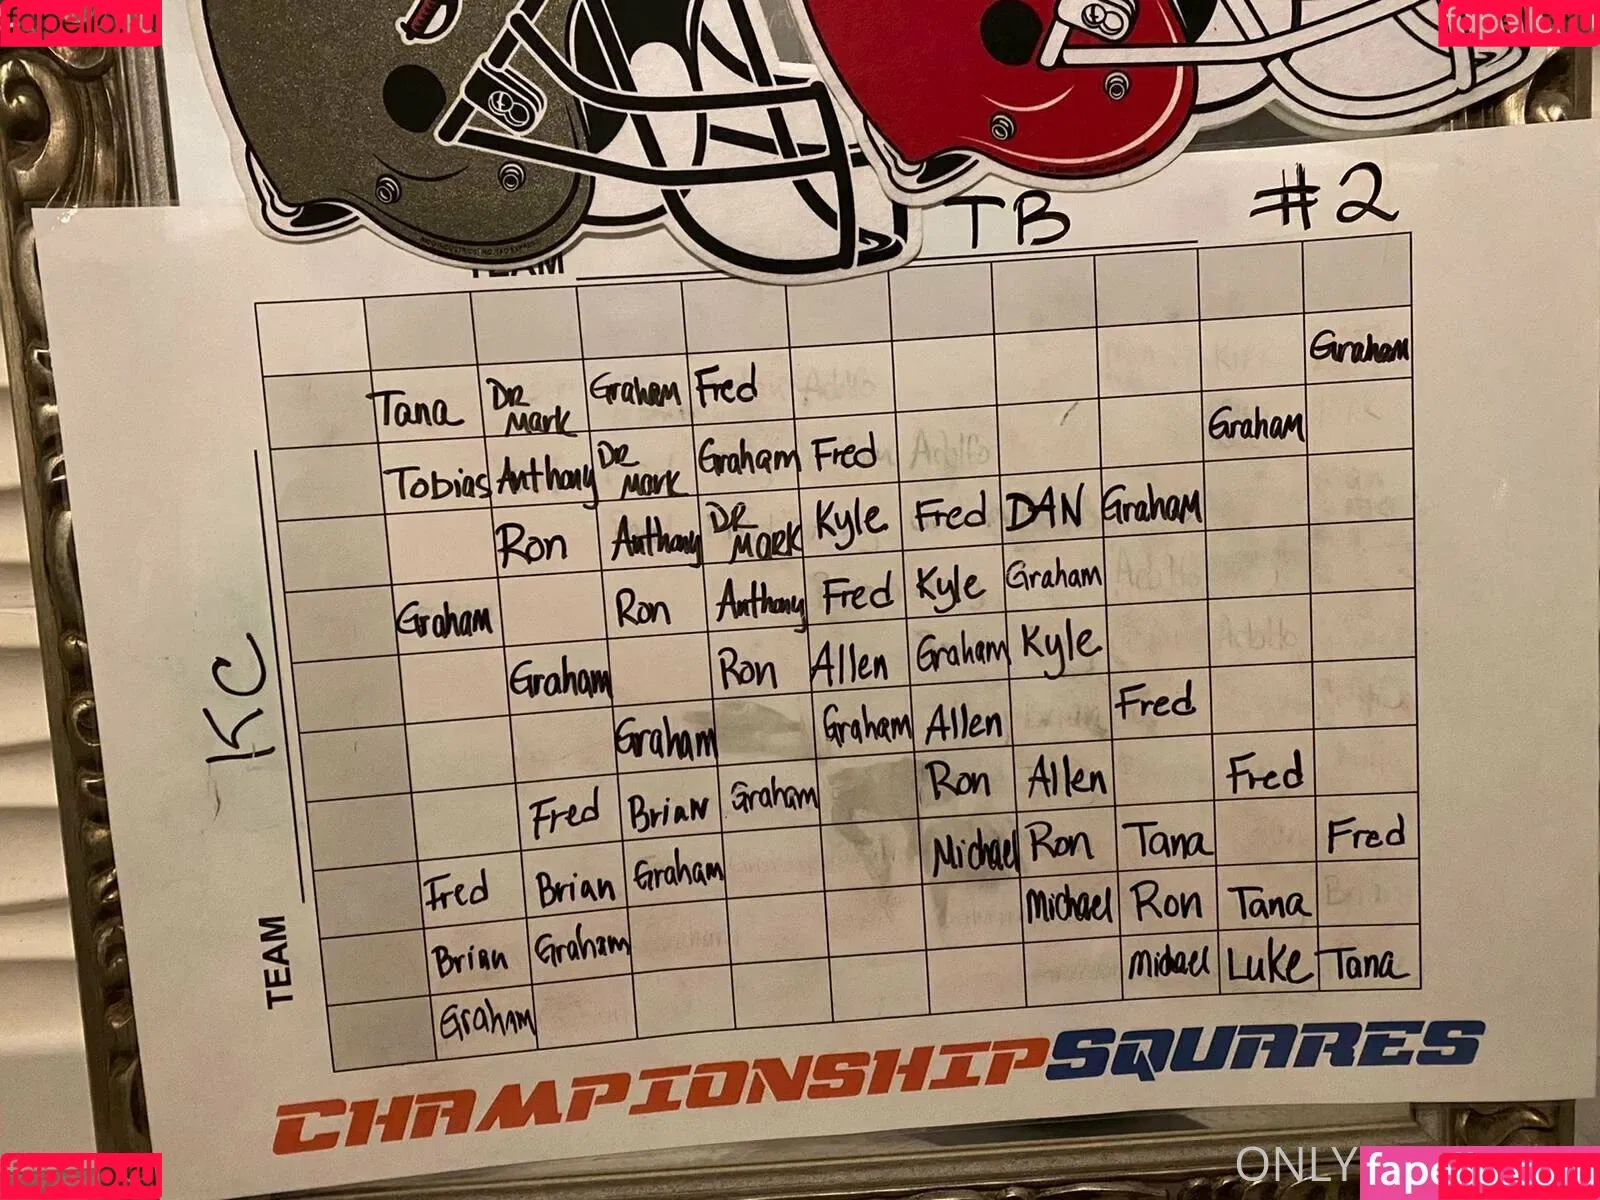 fapello.ru
fapello.ru
TB
#2
TEAM
Graham
Tana DR MARK Graham Fred
Graham
Tobias Anthony DR MARK Graham Fred Adolfo
Ron Anthony DR MARK Kyle Fred DAN Graham
Graham Ron Anthony Fred Kyle Graham
Graham Ron Allen Graham Kyle
KC
Graham Graham Allen Fred
Fred Brian Graham Ron Allen Fred
Fred Brian Graham Michael Ron Tana Fred
Brian Graham Michael Ron Tana
Graham Michael Luke Tana
TEAM
CHAMPIONSHIP SQUARES
fapello.ru
ONLY
fapello.ru